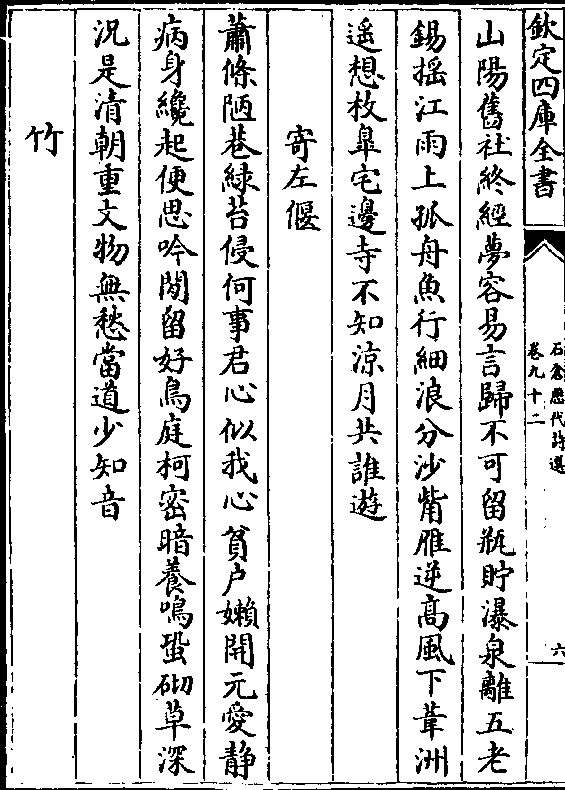 欽定四庫全書
石倉歷代詩選
卷九十二
六
山陽舊社終經夢容易言歸不可留瓶貯瀑泉離五老
錫搖江雨上孤舟魚行細浪分沙觜雁逆高風下葦洲
遥想枚臯宅邊寺不知涼月共誰遊
寄左偃
蕭條陋巷緑苔侵何事君心似我心貧户嬾開元愛静
病身纔起便思吟閒留好鳥庭柯密暗養鳴蛩砌草深
況是清朝重文物無愁當道少知音
竹